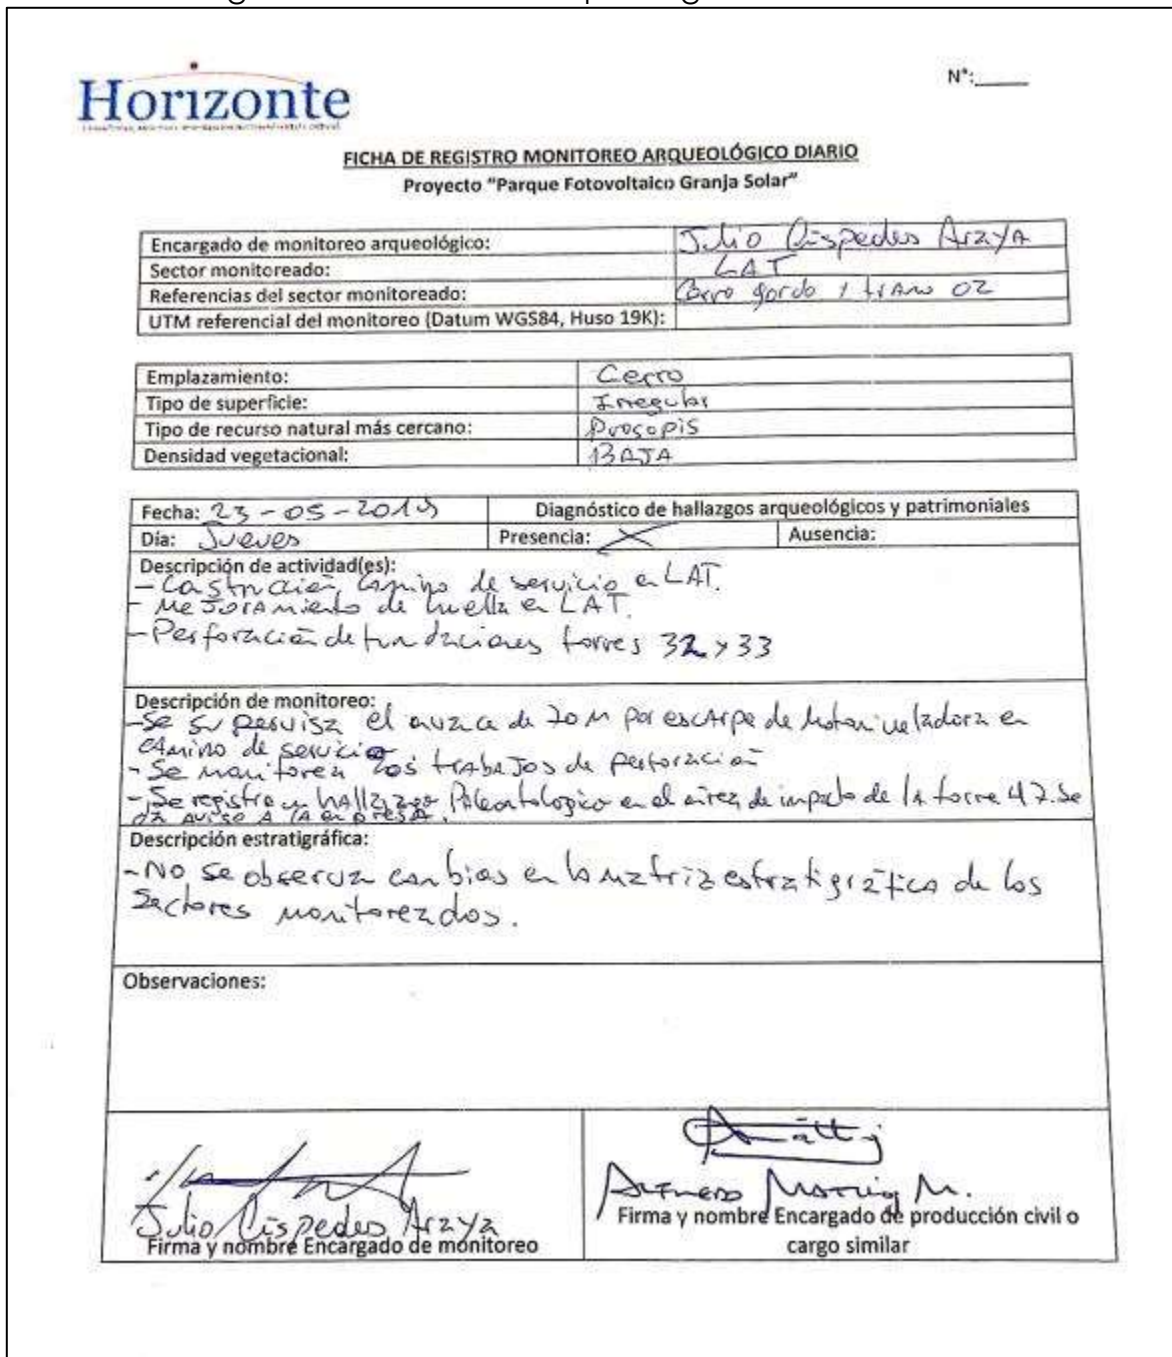 Horizonte
N°:____
FICHA DE REGISTRO MONITOREO ARQUEOLÓGICO DIARIO
Proyecto "Parque Fotovoltaico Granja Solar"
Encargado de monitoreo arqueológico: Julio Céspedes Araya
Sector monitoreado: LAT
Referencias del sector monitoreado: Cerro gordo y tramo 02
UTM referencial del monitoreo (Datum WGS84, Huso 19K):
Emplazamiento: Cerro
Tipo de superficie: Irregular
Tipo de recurso natural más cercano: Prosopis
Densidad vegetacional: BAJA
Fecha: 23-05-2019 Diagnóstico de hallazgos arqueológicos y patrimoniales
Día: Jueves Presencia: X Ausencia:
Descripción de actividad(es):
- Costrucción camino de servicio en LAT.
- Mejoramiento de huella en LAT.
- Perforación de fundaciones torres 32 y 33
Descripción de monitoreo:
- Se supervisa el avance de 70 m por escarpe de motoniveladora en
camino de servicio
- Se monitorea los trabajos de perforación
- Se registra un hallazgo Paleontologico en el airea de impacto de la torre 47. Se
da aviso a la empresa.
Descripción estratigráfica:
- No se observa cambios en la matriz estratigráfica de los
sectores monitoreados.
Observaciones:
Julio Céspedes Araya
Firma y nombre Encargado de monitoreo
Alfredo M.
Firma y nombre Encargado de producción civil o
cargo similar